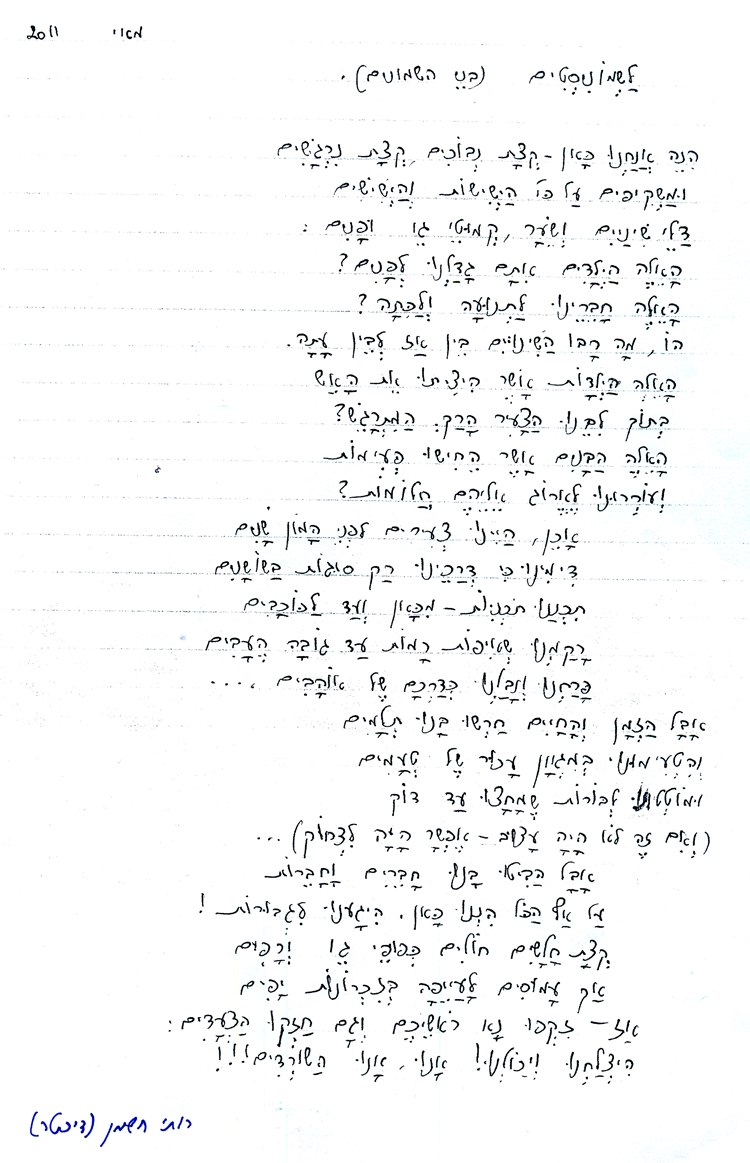 מאי 2011
לַשְּמוֹנִיסְטִים (בְּנֵי השמונים).
הִנֵּה אֲנַחְנוּ כָּאן – קְצָת נְבוֹכִים, קְצָת נִרְגָּשִׁים
וּמַשְׁקִיפִים עַל כֹּל הַיְשִׁישׁוֹת וְהַיְשִׁישִׁים
דַּלֵּי שִׁינַיִים וְשֵׂעָר, קְמוּטֵי גֵּו וּפָנִים :
הַאֵלֶּה הַיְלָדִים אִתָּם גָּדַלְנוּ לְפָנִים?
הַאֵלֶּה חֲבֵרֵינוּ לַתְּנוּעָה וְלַכִּתָּה?
הוֹ, מַה רָבּוּ הַשִּׁינוּיִים בֵּין אַז לְבֵין עָתָּה.
הַאֵלֶּה הַיְלָדוֹת אֲשֶׁר הִיצִּיתוּ אֶת הָאֵשׁ
בְּתוֹךְ לִבֵּנוּ הַצָּעִיר הָרַךְ, הַמִּתְרַגֵּשׁ?
הַאֵלֶּה הַבָּנִים אֲשֶׁר הֶחִישׁוּ פְּעִימוֹת
וְעוֹרְרוּנוּ לֶאֱרוֹג אֲלֵיהֶם חֲלוֹמוֹת?
אָכֵן, הָיִינוּ צְעִירִים לִפְנֵי הָמוֹן שָׁנִים
דִּימִינוּ כִּי דְּרָכֵינוּ רַק סוּגוֹת בַּשׁוֹשָׁנִים
תִּכְנַנּוּ תָּכְנִיּוֹת – מִכָּאן וְעַד לַכּוֹכָבִים
רָקַמְנוּ שְׁאִיפוֹת רָמוֹת עַד גוֹבַהּ הֶעָבִים
פָּרַחְנוּ וְנָבַלְנוּ כְּדַרְכָּם שֶׁל אוֹהֲבִים ....
אֲבָל הַזְּמַן וְהַחַיִּים חָרְשׁוּ בָּנוּ תְּלָמִים
וְהִטְעִימוּנוּ בְּמִגְוָון עָכוּר שֶׁל טְעָמִים
לְבוֹרוֹת שֶׁמָּחֲצוּ עַד דּוֹק
(וְאִם זֶה לֹא הָיָה עָצוּב – אֶפְשָׁר הָיָה לִצְחוֹק) ...
אֲבָל הַבִּיטוּ בָּנוּ חֲבֵרִים וַחֲבֵרוֹת
עַל אַף הַכֹּל הִנְנוּ כָּאן, הִיגַּעְנוּ לִגְבוּרוֹת!
קְצָת חֲלָשִׁים חוֹלִים כְּפוּפֵי גֵּו וְרָפִים
אַךְ עֲמוּסִים לַעֲיֵיפָה בְּזִכְרוֹנוֹת יָפִים
אָז – זִקְפוּ נָא רָאשֵׁיכֶם וְגַם חַזְּקוּ הַצְּעָדִים:
הִיצְלַחְנוּ וְיָכוֹלְנוּ! אָנוּ, אָנוּ הַשּׂוֹרְדִים!!!
רותי חשמן (דיכטר)